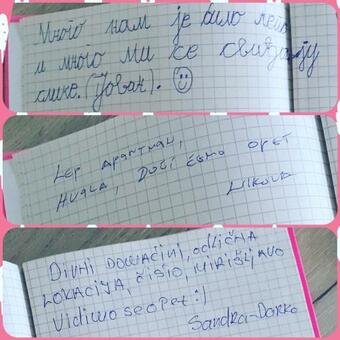 Много нам је било лепо
и много ми се свиђају
слике. (Јован). ☺
Lep apartman,
HVALA, Doći ćemo opet
Nikola
Divni domaćini, odlična
lokacija, čisto, mirišljavo
Vidimo se opet :)
Sandra-Darko